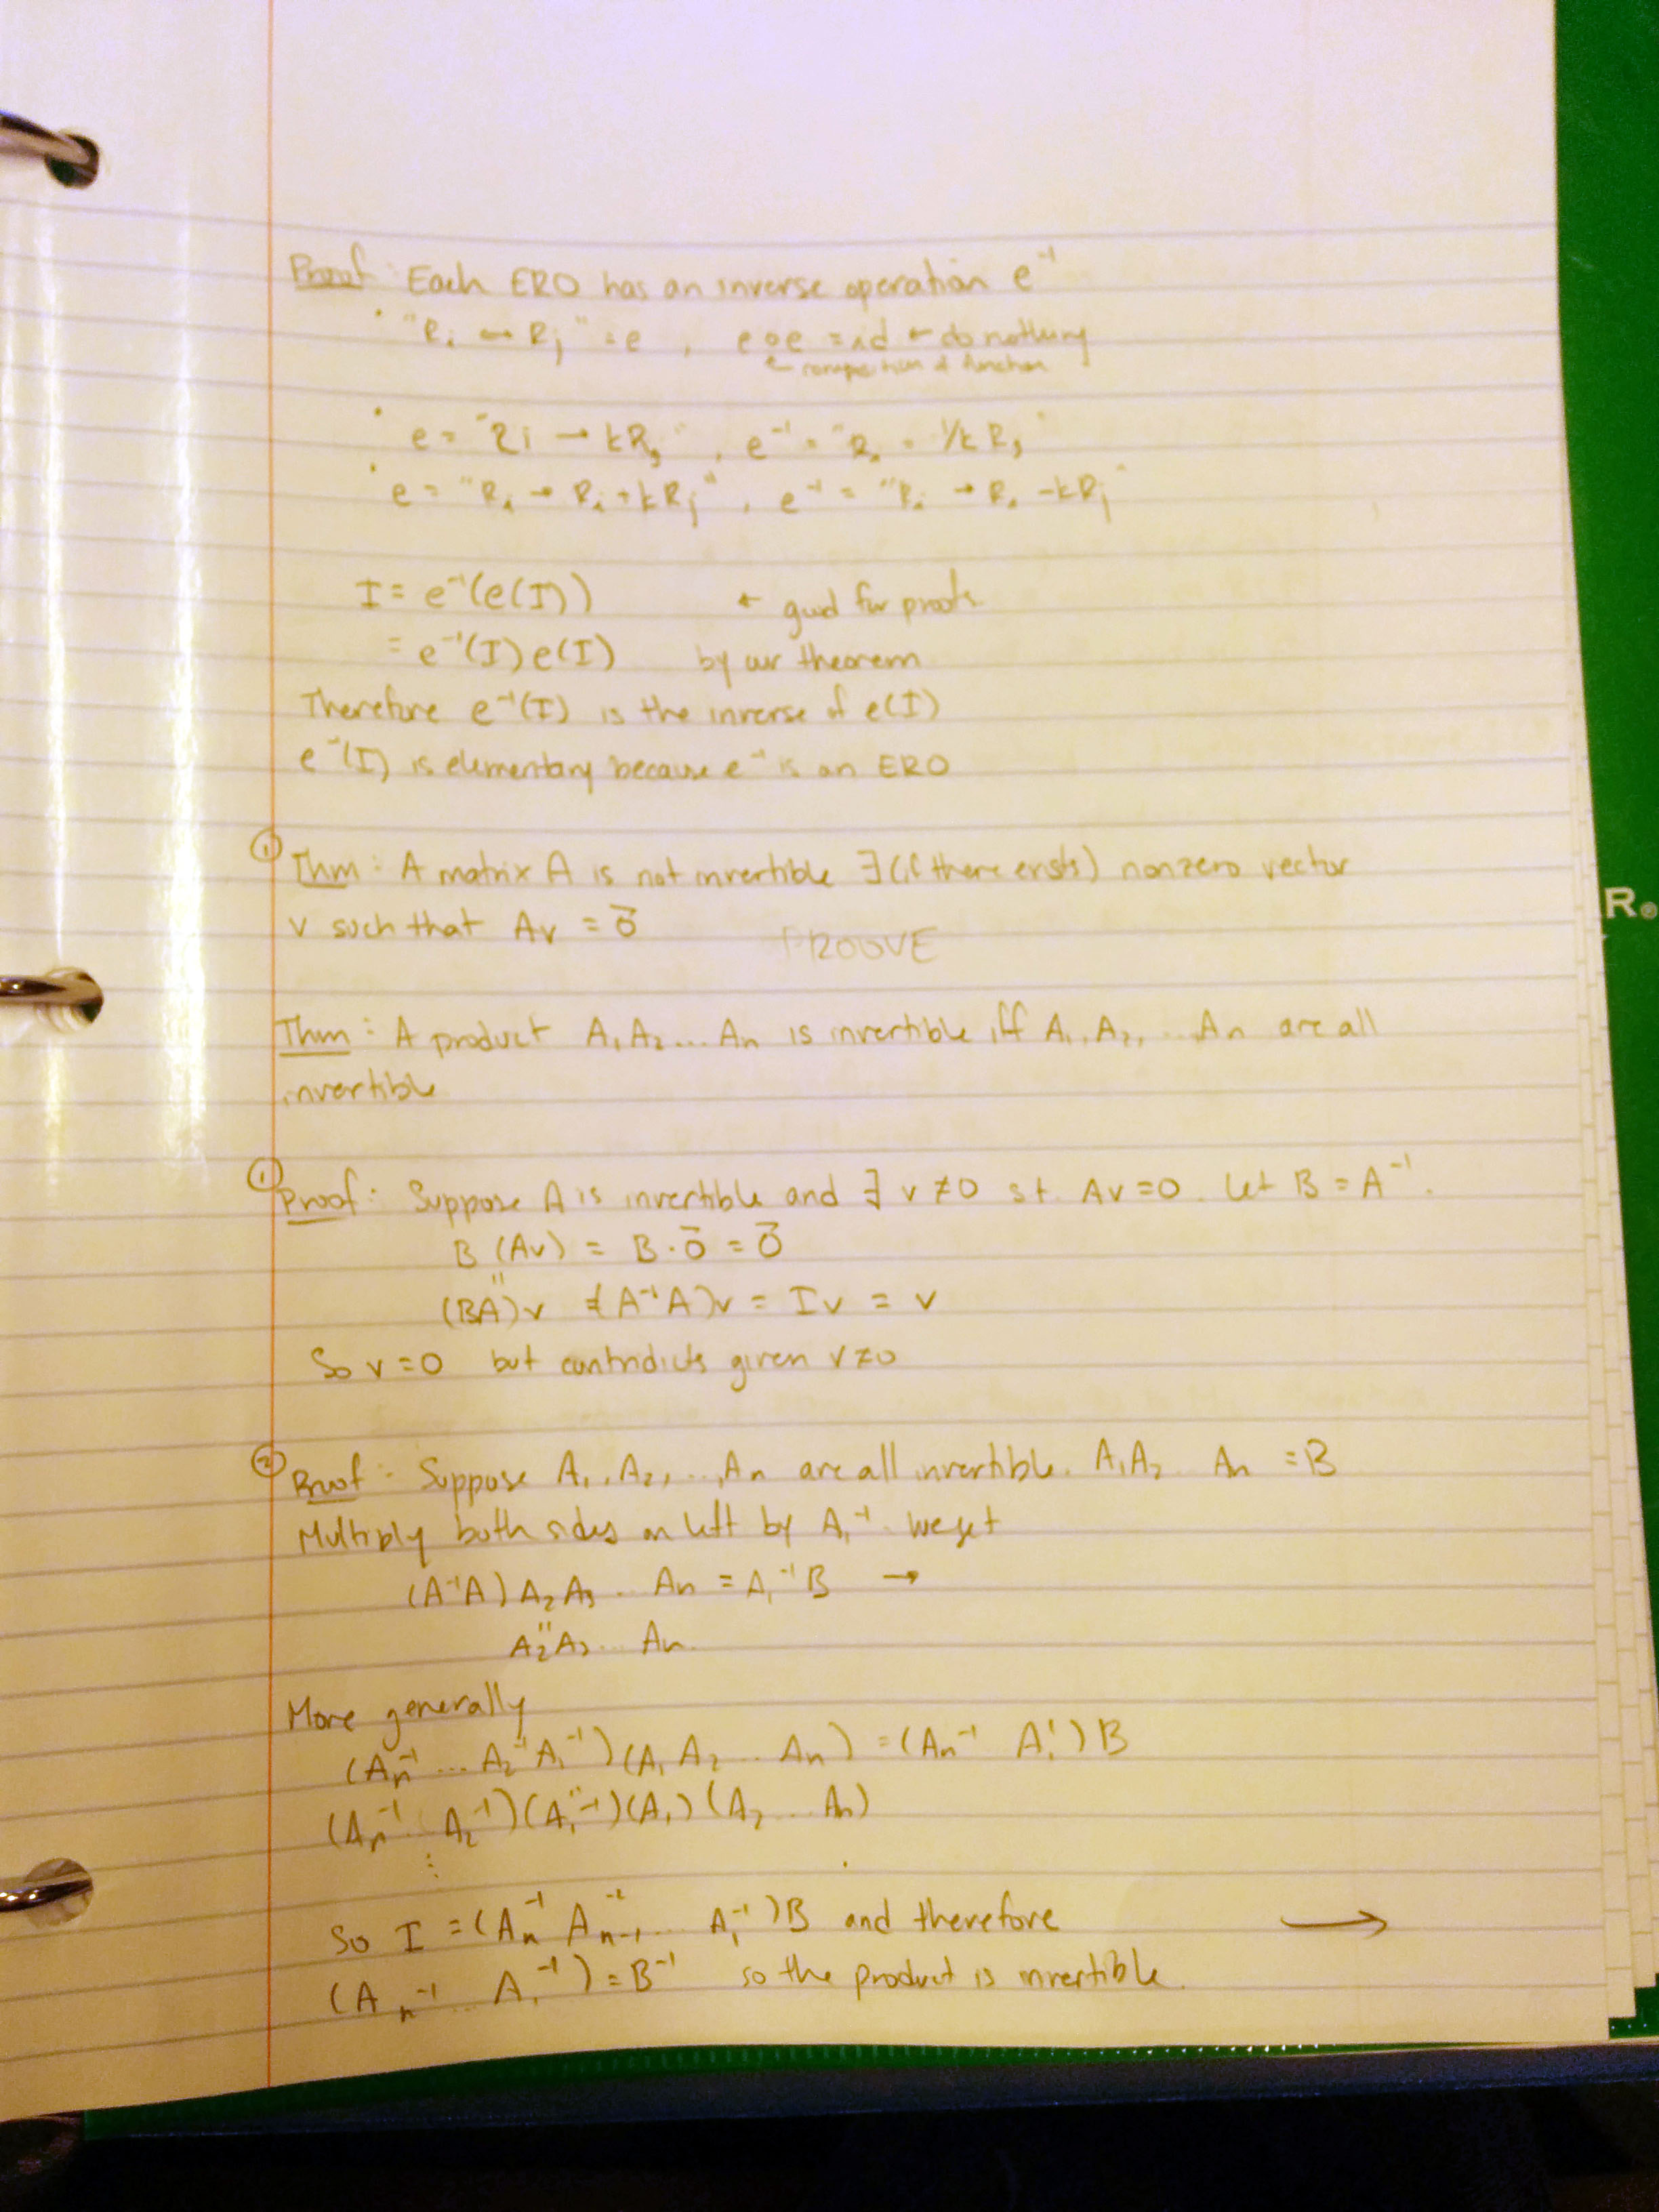 Proof: Each ERO has an inverse operation e⁻¹
• "Ri ↔ Rj" = e , e∘e = id ← do nothing
← composition of function
• e = "Ri → kRj" , e⁻¹ = "Ri = 1/k Rj"
• e = "Ri → Ri + kRj" , e⁻¹ = "Ri → Ri - kRj"
I = e⁻¹(e(I)) ← good for proofs
= e⁻¹(I)e(I) by our theorem
Therefore e⁻¹(I) is the inverse of e(I)
e⁻¹(I) is elementary because e⁻¹ is an ERO
① Thm: A matrix A is not invertible ∃ (if there exists) nonzero vector
v such that Av = 0⃗ PROOVE
R®
Thm: A product A₁A₂...An is invertible iff A₁, A₂, ...An are all
invertible
① Proof: Suppose A is invertible and ∃ v≠0 st. Av=0. let B = A⁻¹.
B(Av) = B·0⃗ = 0⃗
"
(BA)v = (A⁻¹A)v = Iv = v
So v=0 but contradicts given v≠0
② Proof: Suppose A₁, A₂, ..., An are all invertible. A₁A₂ An = B
Multiply both sides on left by A₁⁻¹. We get
(A⁻¹A)A₂A₃... An = A₁⁻¹B →
"
A₂A₃... An.
More generally
(An⁻¹ ... A₂⁻¹A₁⁻¹)(A₁A₂... An) = (An⁻¹ A₁⁻¹)B
"
(An⁻¹ A₂⁻¹)(A₁⁻¹)(A₁)(A₂... An)
⋮
So I = (An⁻¹ An-1⁻¹... A₁⁻¹)B and therefore →
(An⁻¹... A₁⁻¹) = B⁻¹ so the product is invertible.